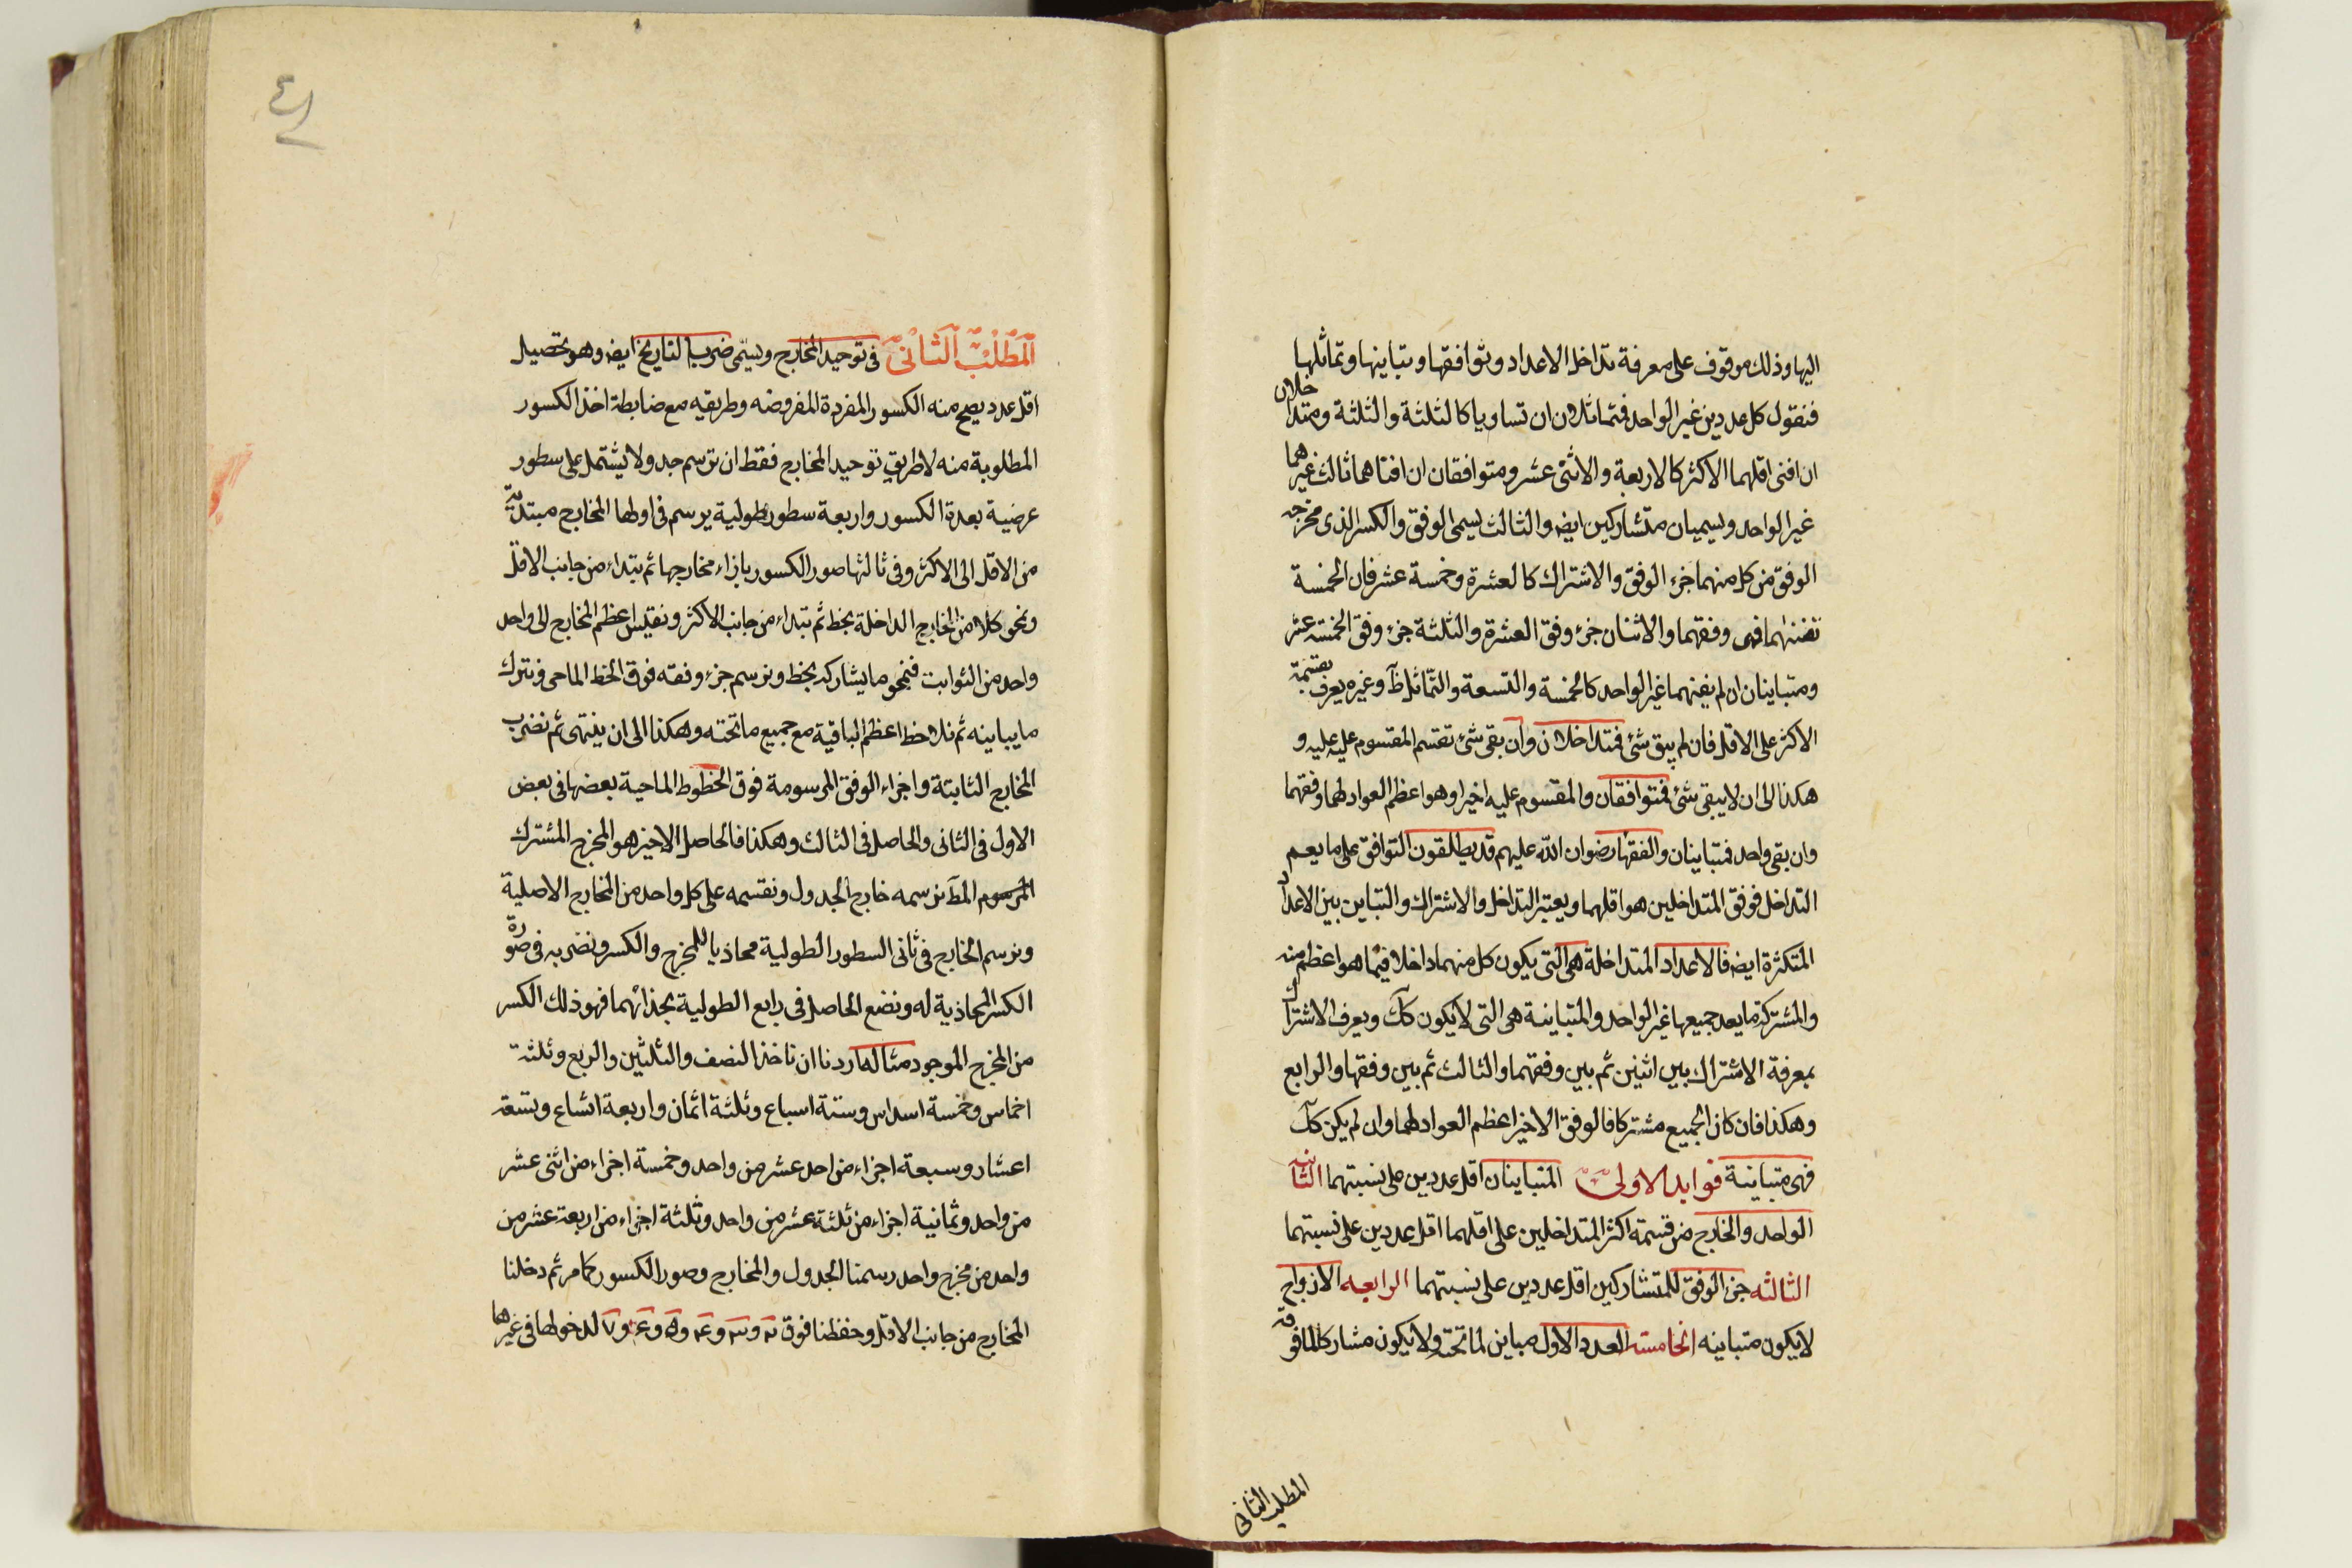 اليها وذلك موقوف على معرفة تداخل الاعداد وتوافقها وتباينها وتماثلها
فنقول كل عددين غير الواحد فتماثلان ان تساويا كالثلثة والثلثة ومتداخلان
ان افنى اقلهما الاكثر كالاربعة والاثنى عشر ومتوافقان ان افناهما ثالث غيرهما
غير الواحد ويسميان متشاركين ايضه والثالث يسمى الوفق والكسر الذى مخرجه
الوفق من كل منهما جزء الوفق والاشتراك كالعشرة وخمسة عشر فان الخمسة
تفنيهما فهى وفقهما والاثنان جزء وفق العشرة والثلثة جزء وفق الخمسة عشر
ومتباينان ان لم يفنهما غير الواحد كالخمسة والتسعة والتماثل ظآ وغيره يعرف بقسمة
الاكثر على الاقل فان لم يبق شئ فمتداخلان وان بقى شئ تقسم المقسوم عليه عليه و
هكذا الى ان لا يبقى شئ فمتوافقان والمقسوم عليه اخيرا وهو اعظم العواد لهما وفقهما
وان بقى واحد فمتباينان والفقها رضوان الله عليهم قد يطلقون التوافق على ما يعم
التداخل فوفق المتداخلين هو اقلهما ويعتبر التداخل والاشتراك والتباين بين الاعداد
المتكثرة ايضه فالاعداد المتداخلة هى التى يكون كل منهما داخلا فيما هو اعظم منه
والمشتركة ما يعد جميعها غير الواحد والمتباينة هى التى لا يكون كآ وبعرف الاشتراك
بمعرفة الاشتراك بين اثنين ثم بين وفقهما والثالث ثم بين وفقها والرابع
وهكذا فان كان الجميع مشتركا فالوفق الاخير اعظم العواد لهما وان لم يكن كآ
فهى متباينة فوايد الاولى المتباينان اقل عددين على نسبتهما الثانيه
الواحد والخارج من قسمة اكثر المتداخلين على اقلهما اقل عددين على نسبتهما
الثالثه جزء الوفق للمتشاركين اقل عددين على نسبتهما الرابعه الازواج
لا يكون متباينه الخامسة العدد الاول مباين لما تحته ولا يكون مشاركا لما فوقه
المطلب الثانى
المطلب الثانى فى توحيد المخارج ويسمى ضرب التاريخ ايضه وهو تحصيل
اقل عدد يصح منه الكسور المفردة المفروضه وطريقيه مع ضابطة اخذ الكسور
المطلوبة منه لا طريق توحيد المخارج فقط ان ترسم جدولا يشتمل على سطور
عرضية بعدة الكسور واربعة سطور طولية يرسم فى اولها المخارج مبتدية
من الاقل الى الاكثر وفى ثالثها صور الكسور بازاء مخارجها ثم يبتداء من جانب الاقل
ونمحو كلا من المخارج الداخلة بخط ثم نبتداء من جانب الاكثر ونقيس اعظم المخارج الى واحد
واحد من الثوابت فنمحو ما يشاركه بخط ونرسم جزء وفقه فوق الخط الماحى ونترك
ما يباينه ثم نلاحظ اعظم الباقية مع جميع ما تحته وهكذا الى ان ينتهى ثم نضرب
المخارج الثابتة واجزاء الوفق المرسومة فوق الخطوط الماحية بعضها فى بعض
الاول فى الثانى والحاصل فى الثالث وهكذا فالحاصل الاخير هو المخرج المشترك
المرسوم المط نرسمه خارج الجدول ونقسمه على كل واحد من المخارج الاصلية
ونرسم الخارج فى ثانى السطور الطولية محاذيا للمخرج والكسر ونضربه فى صورة
الكسر المحاذية له ونضع الحاصل فى رابع الطولية بحذائهما فهو ذلك الكسر
من المخرج الموجود مثاله اردنا ان ناخذ النصف والثلثين والربع وثلثة
اخماس وخمسة اسداس وستة اسباع وثلثة اثمان واربعة اتساع وتسعة
اعشار وسبعة اجزاء من احد عشر من واحد وخمسة اجزاء من اثنى عشر
من واحد وثمانية اجزاء من ثلثة عشر من واحد وثلثة اجزاء من اربعة عشر من
واحد من مخرج واحد رسمنا الجدول والمخارج وصور الكسور كما مر ثم دخلنا
المخارج من جانب الاقل وحفظنا فوق ٢ و٣ و۴ و۵ و۶ و٧ لدخولها فى غيرها